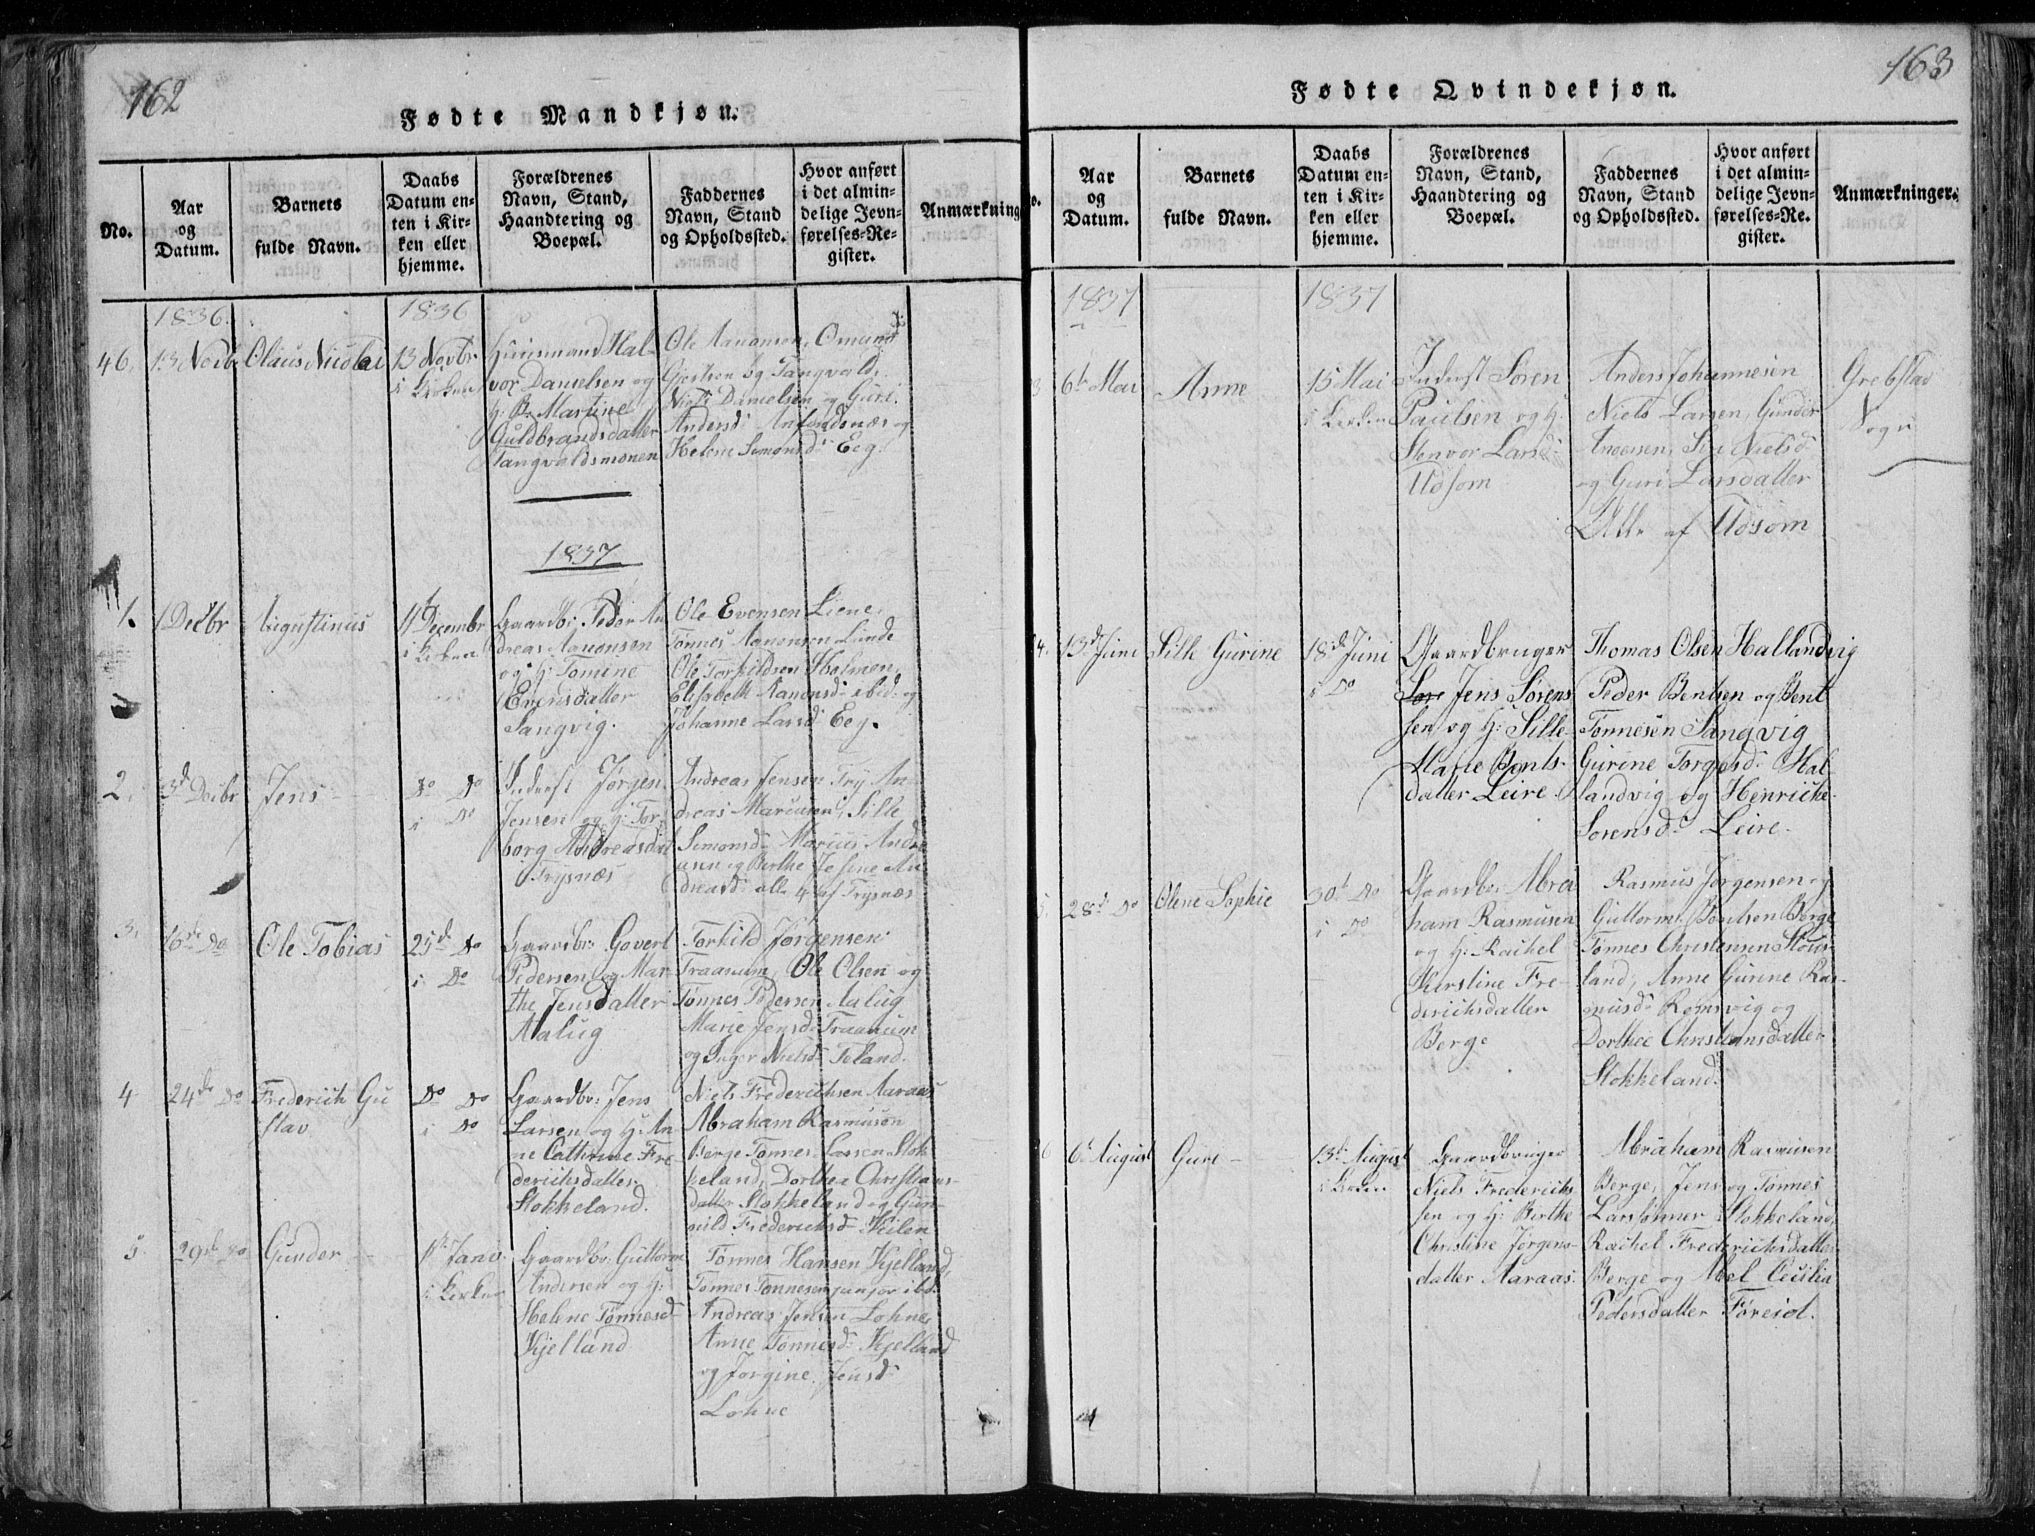 162
Fødte Mandkjøn.
No.
Aar
og
Datum.
Barnets
fulde Navn.
Daabs
Datum en-
ten i Kir-
ken eller
hjemme.
Forældrenes
Navn, Stand,
Haandtering og
Boepæl.
Faddernes
Navn, Stand
og Opholdssted.
Hvor anført
i det almin-
delige Jevn-
førelses-Re-
gister.
Anmærkning
1836.
1836
46.
13 Novbr
Olaus Nicolai
13 Novbr
i Kirken
Huusmand Hal-
vor Danielsen og
H: Martine
Guldbrandsdatter
Tangvaldsmonen
Ole Aanonsen, Omund
Gjertsen og Tangvald,
Niels Danielsen og Guri
Andersd:
Helene Simonsd: Eeg.
1837
1.
1 Decbr
Augustinus
11 Decembr
i Kirken
Gaardbr: Peder An
dreas Aanonsen
og H: Tomine
Evensdatter
Sangvig.
Ole Evensen Liene,
Tønnes Aanonsen Lunde
Ole Torkildsen Holmen,
Elisabeth Aanonsd: ibid: og
Johanne Larsd: Eeg.
2.
3d Decbr
Jens
Do Do
i Do
Inderst Jørgen
Jensen og H: Tor-
borg Andreasdat
Trysnæs
Andreas Jensen Try An-
dreas Mariusen, Sille
Simonsd: Marius Andre
asen og Berthe Josine An
dreasd: alle 4 af Trysnæs
3.
16de Do
Ole Tobias
25de Do
i Do
Gaardbr: Govert
Pedersen og Mar-
the Jensdatter
Aalug
Torkild Jørgensen
Traanum, Ole Olsen og
Tønnes Pedersen Aalug
Marie Jensd: Traanum
og Inger Nielsd: Toland.
4
24de Do
Frederich Gu
stav
Do Do
i Do
Gaardbr: Jens
Larsen og H: An-
ne Cathrine Fre
derichsdatter
Stokkeland.
Niels Frederichsen Aaraas
Abraham Rasmusen
Berge Tønnes Larsen Stok
keland, Dorthea Christians-
datter Stokkeland og Gun-
vild Frederichsd: Keilen
5.
29de Do
Gunder
1ste Janv.
i Kirken
Gaardbr: Guttorm
Andersen og H:
Helene Tønnesd
Kjelland
Tønnes Hansen Kjelland,
Tønnes Tønnesen junior ibd:
Andreas Jensen Lohne,
Anne Tønnesd: Kjelland
og Jørgine Jensd
Lohne
163
Fødte Qvindekjøn.
o.
Aar
og
Datum.
Barnets
fulde Navn.
Daabs
Datum en-
ten i Kir-
ken eller
hjemme.
Forældrenes
Navn, Stand,
Haandtering og
Boepæl.
Faddernes
Navn, Stand
og Opholdssted.
Hvor anført
i det almin-
delige Jevn-
førelses-Re-
gister.
Anmærkninger.
1837
1837
3
6te Mai
Anne
15 Mai
i Kirken
Inderst Søren
Paulsen og H:
Stenvor Larsd:
Udsom
Anders Johannesen
Niels Larsen, Gunder
Andersen, Siri Nielsd:
og Guri Larsdatter
Alle af Udsom
Grebstad
Sogn
4.
13de Juni
Sille Gurine
18de Juni
i Do
Gaardbruger
Jens Sørens
sen og H: Sille
Marie Bents-
datter Leire.
Thomas Olsen Hallandvig
Peder Bentsen og Bent
Tønnesen Sangvig
Gurine Torgesd: Hal-
landvig og Henricke
Sørensd: Leire.
5.
28de Do
Olene Sophie
30te Do
i Do
Gaardbr: Abra
ham Rasmusen
og H: Rachel
Kirstine Fre-
derichsdatter
Berge
Rasmus Jørgensen og
Guttorm Bentsen Berge
Tønnes Christensen Stok-
land, Anne Gurine Ras-
musd: Romsvig og
Dorthee Christiansdatter
Stokkeland.
6
6te August
Gure
13de August
i Kirken
Gaardbruger
Niels Frederichs
sen og H: Birthe
Christine Jørgens-
datter Aaraas.
Abraham Rasmusen
Berge, Jens og Tønnes
Larsønner Stokkeland,
Rachel Frederichsdatter
Berge og Abel Cecilia
Pedersdatter Føreid.